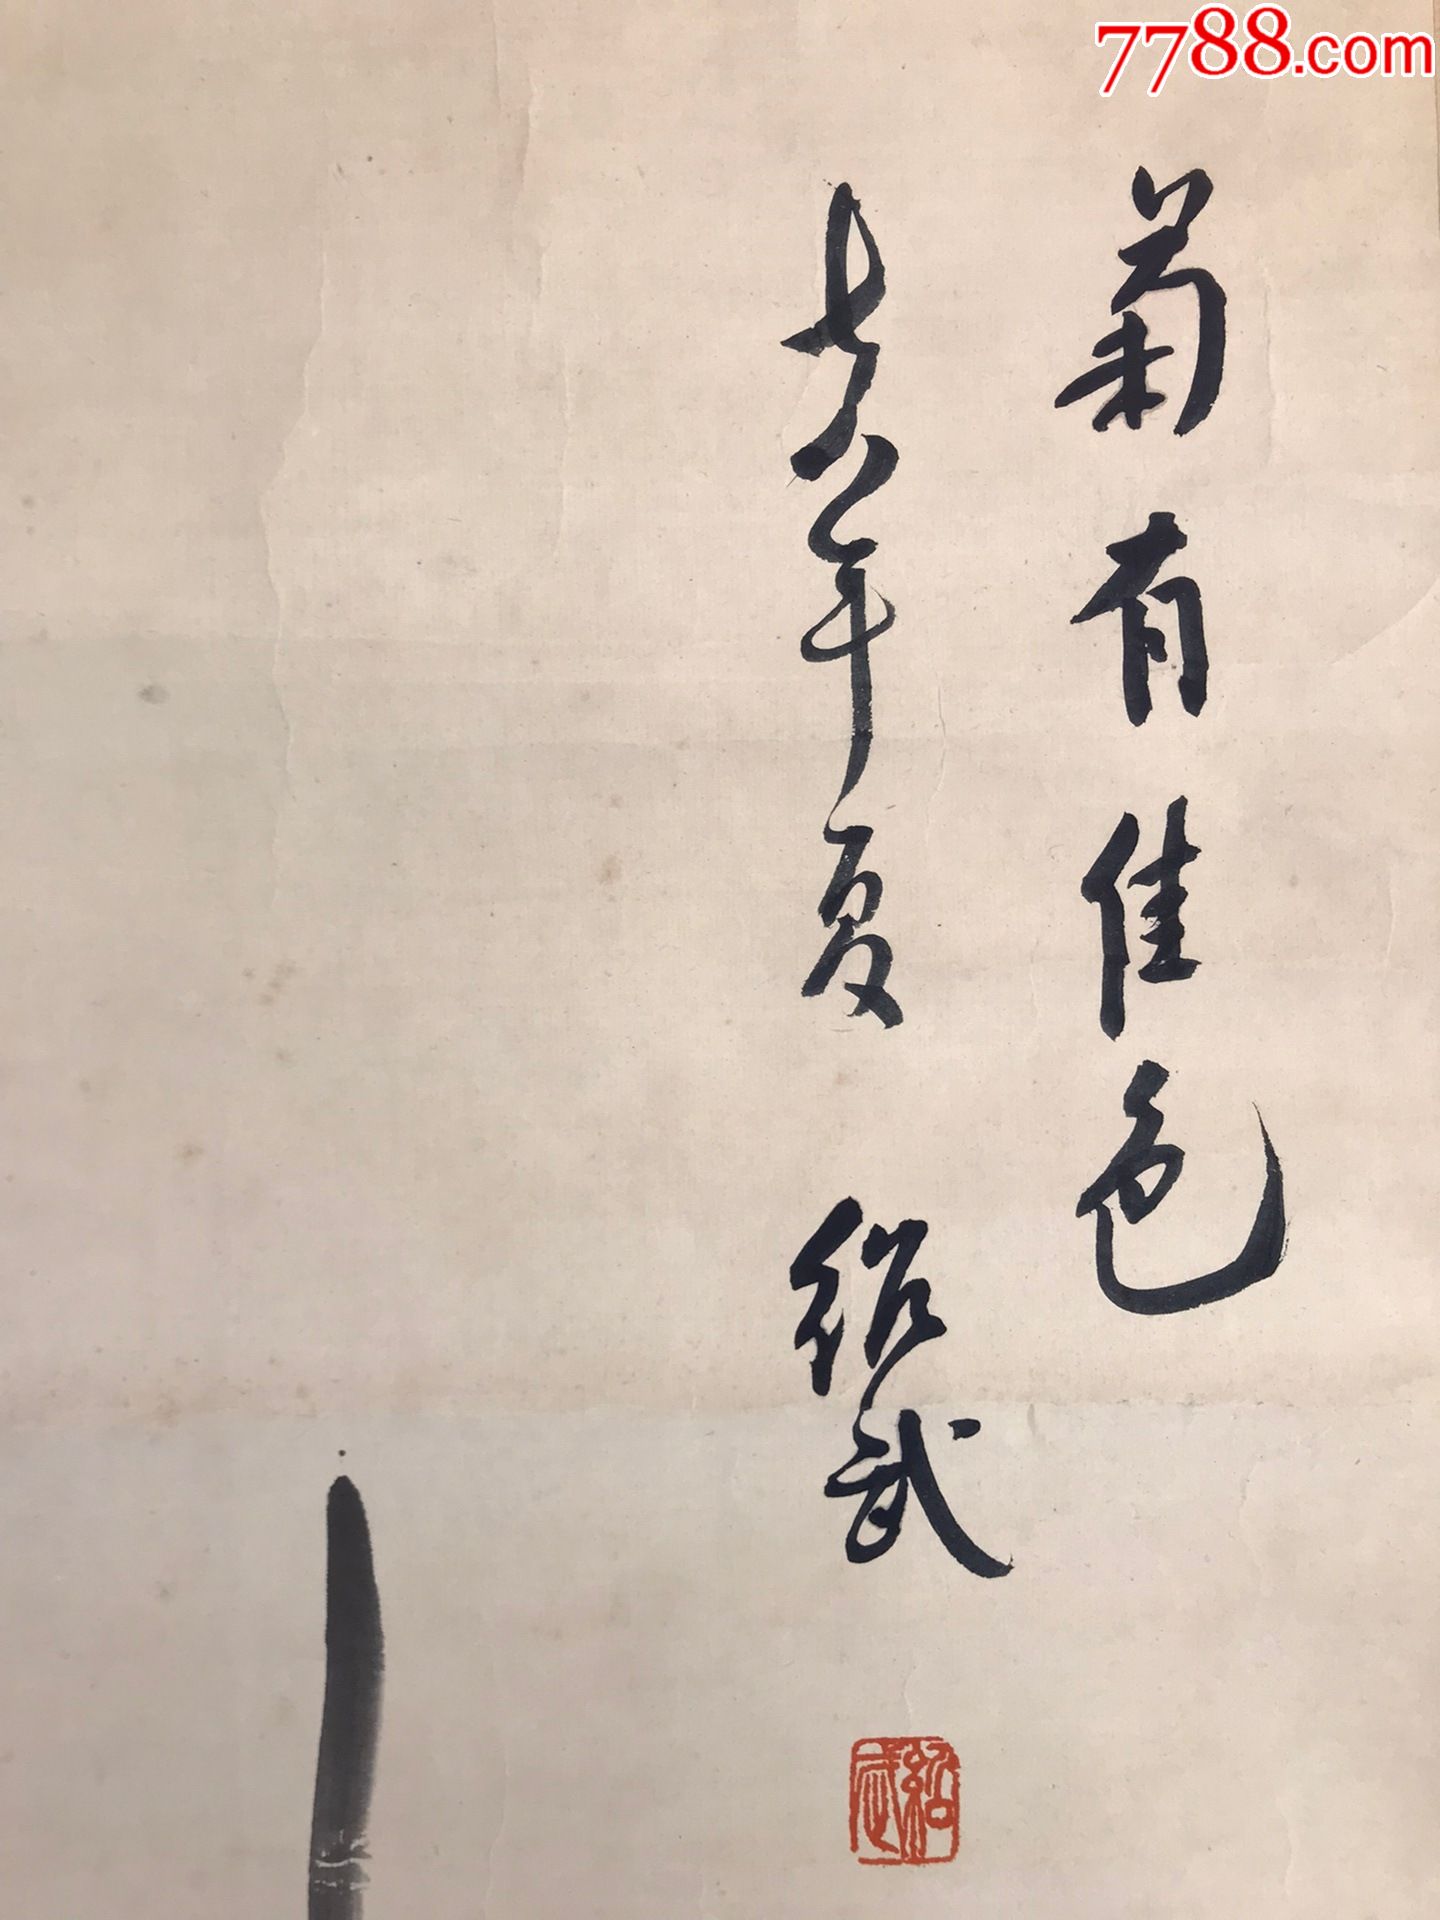 7788.com
菊有佳色
七八年夏 绍武